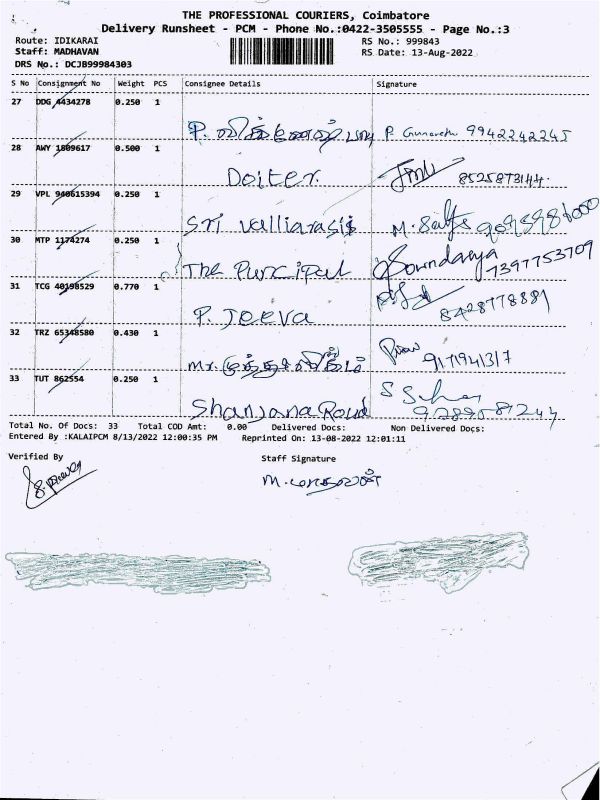 THE PROFESSIONAL COURIERS, Coimbatore
Delivery Runsheet - PCM - Phone No.:0422-3505555 - Page No.:3
Route: IDIKARAI RS No.: 999843
Staff: MADHAVAN RS Date: 13-Aug-2022
DRS No.: DCJB99984303
S No Consignment No Weight PCS Consignee Details Signature
27 DDG 4434278 0.250 1
P. 9942242245
28 AWY 1809617 0.500 1
Doiter
29 VPL 940615394 0.250 1
Sri valliarasis M.
30 MTP 1174274 0.250 1
The Puncipal Soundarya 7397753709
31 TCG 40198529 0.770 1
P. Jeeva 8428778881
32 TRZ 65348580 0.430 1
Mr.
33 TUT 862554 0.250 1
Shanjana
Total No. Of Docs: 33 Total COD Amt: 0.00 Delivered Docs: Non Delivered Docs:
Entered By :KALAIPCM 8/13/2022 12:00:35 PM Reprinted On: 13-08-2022 12:01:11
Verified By Staff Signature
M. மாதவன்